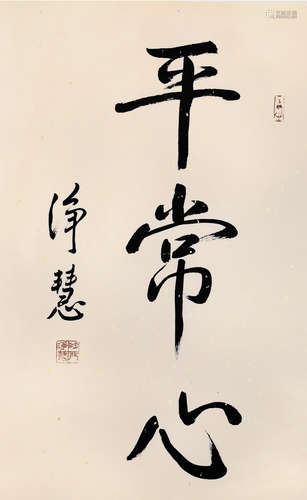 平常心
净慧